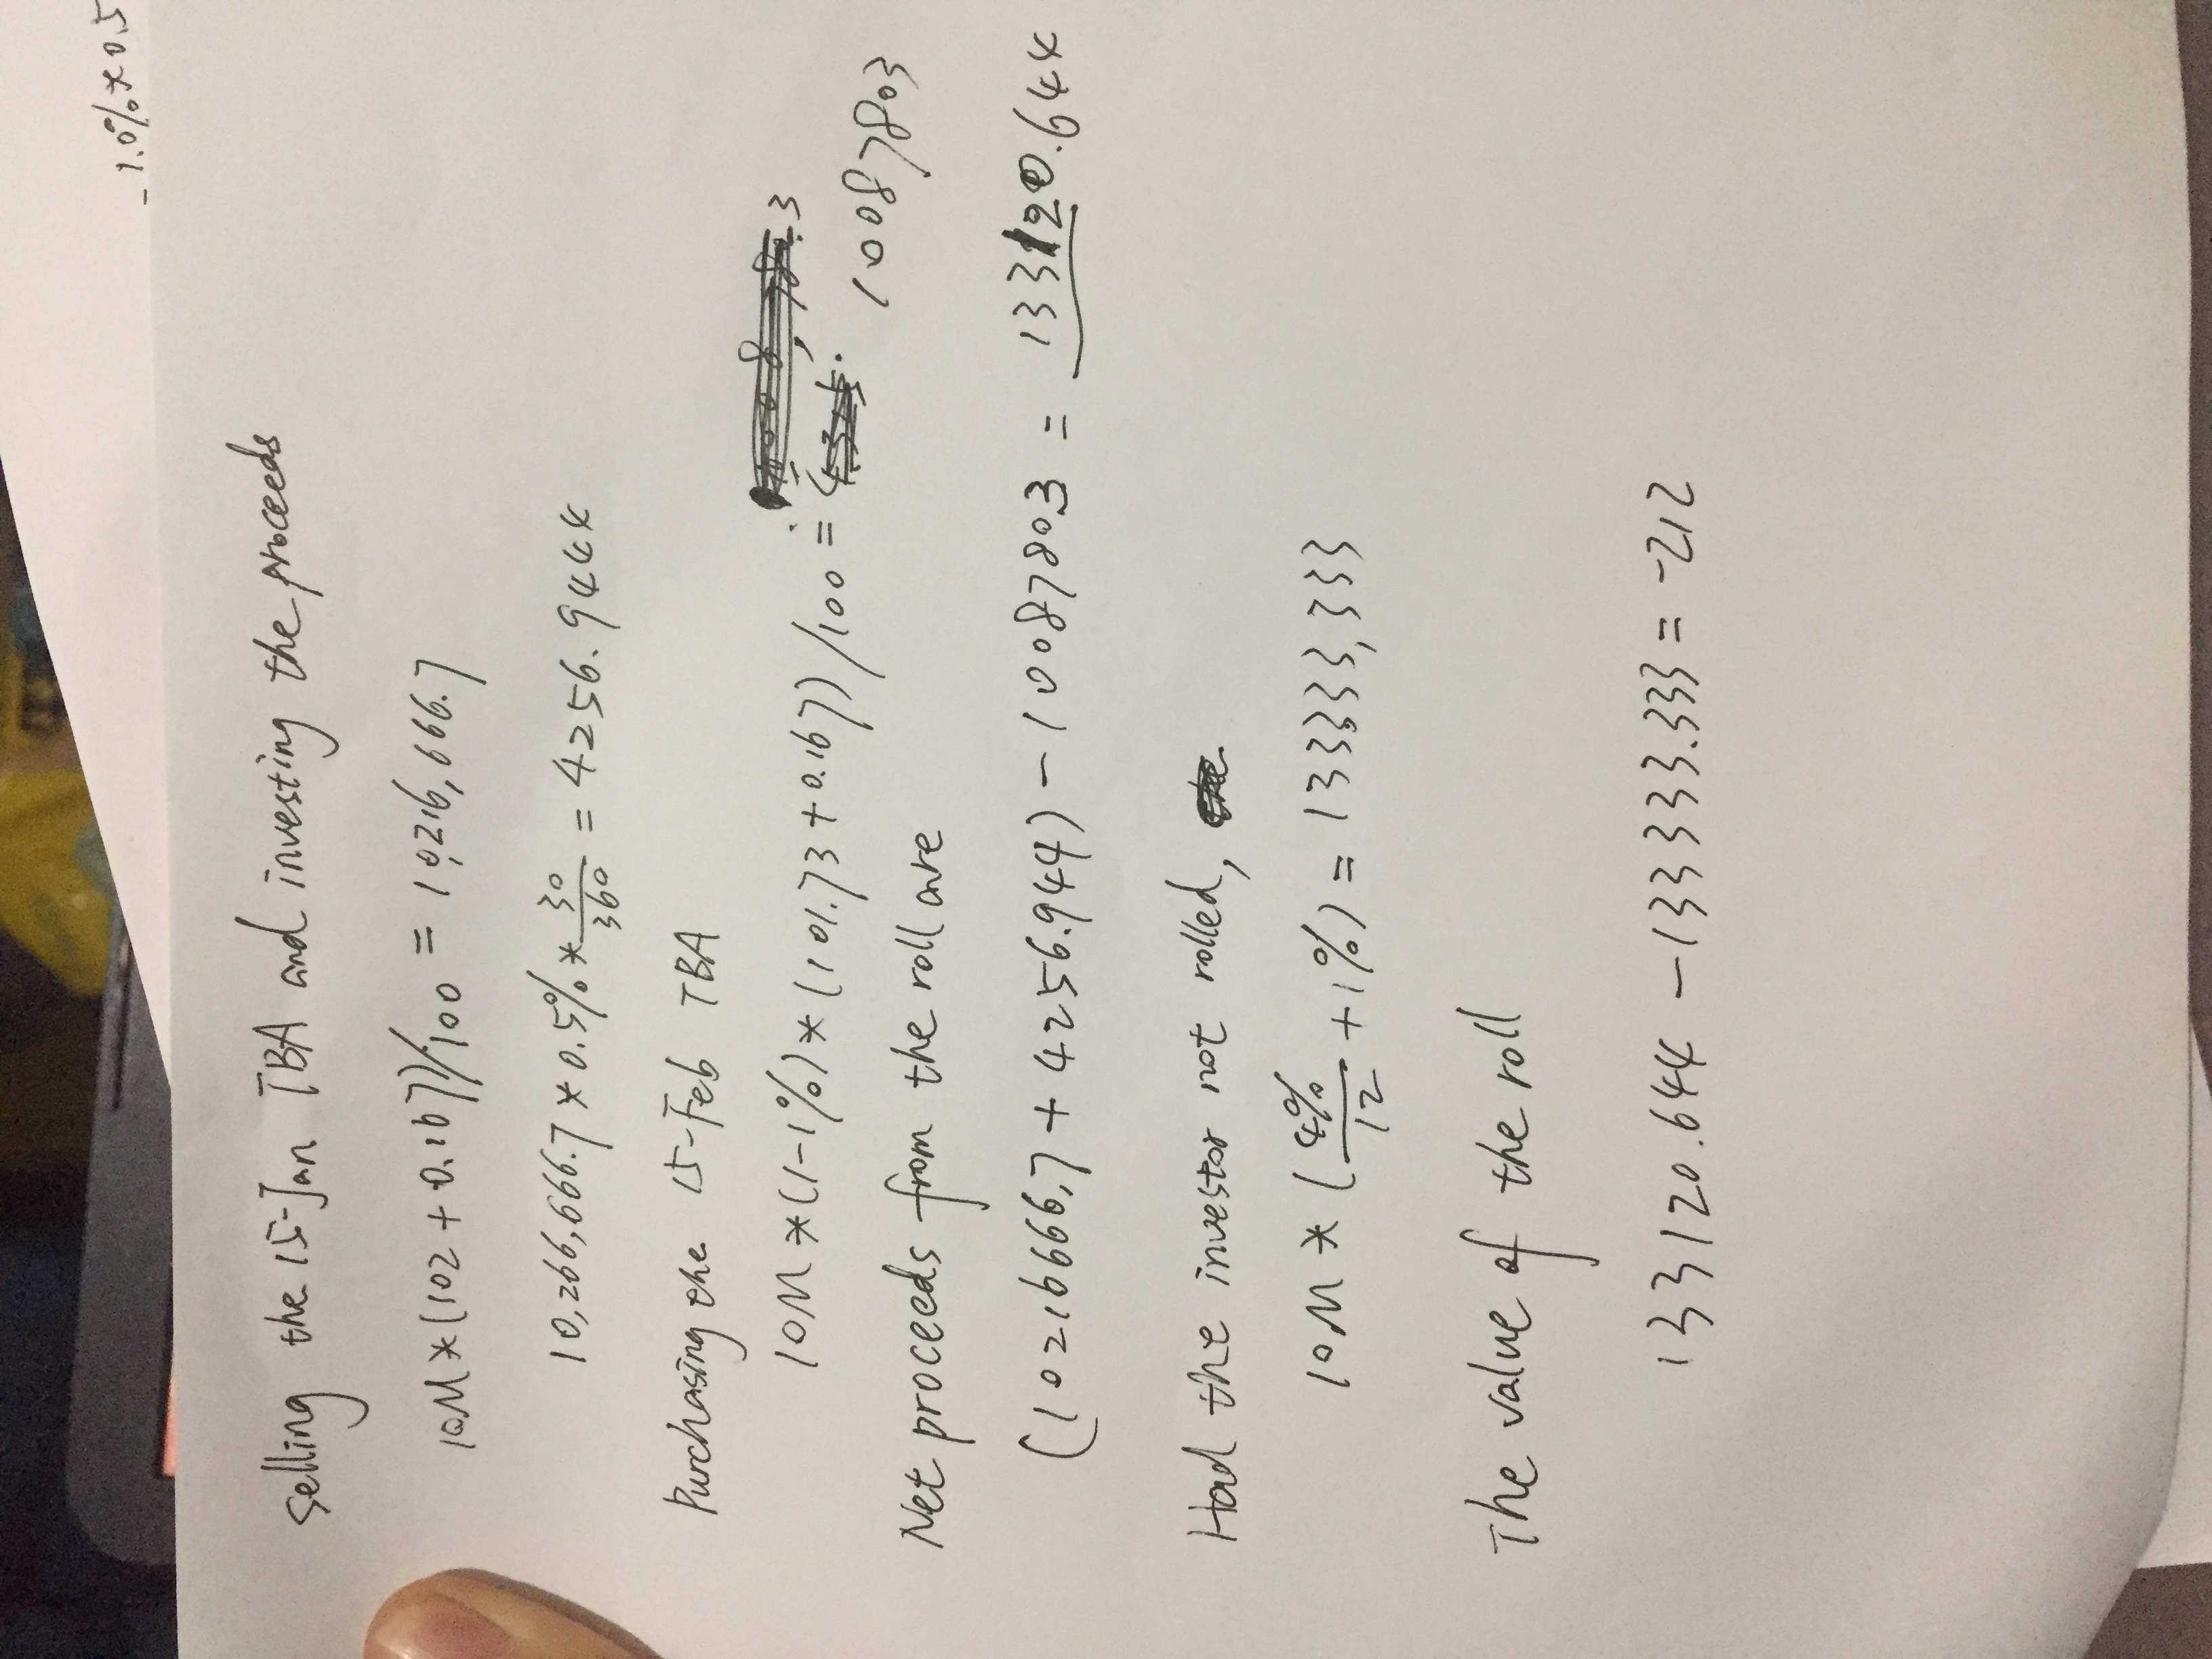 - 1.0% * 0.5
Selling the 15-Jan TBA and investing the proceeds
10M * (102 + 0.167)/100 = 10,216,666.7
10,266,666.7 * 0.5% * 30/360 = 4256.944
Purchasing the 15-Feb TBA
10M * (1-1%) * (101.73 + 0.167)/100 = 10087803
Net proceeds from the roll are
(10216666.7 + 4256.944) - 10087803 = 133120.644
Had the investor not rolled,
10M * (4%/12 + 1%) = 133333,333
The value of the roll
133120.644 - 133333.333 = -212